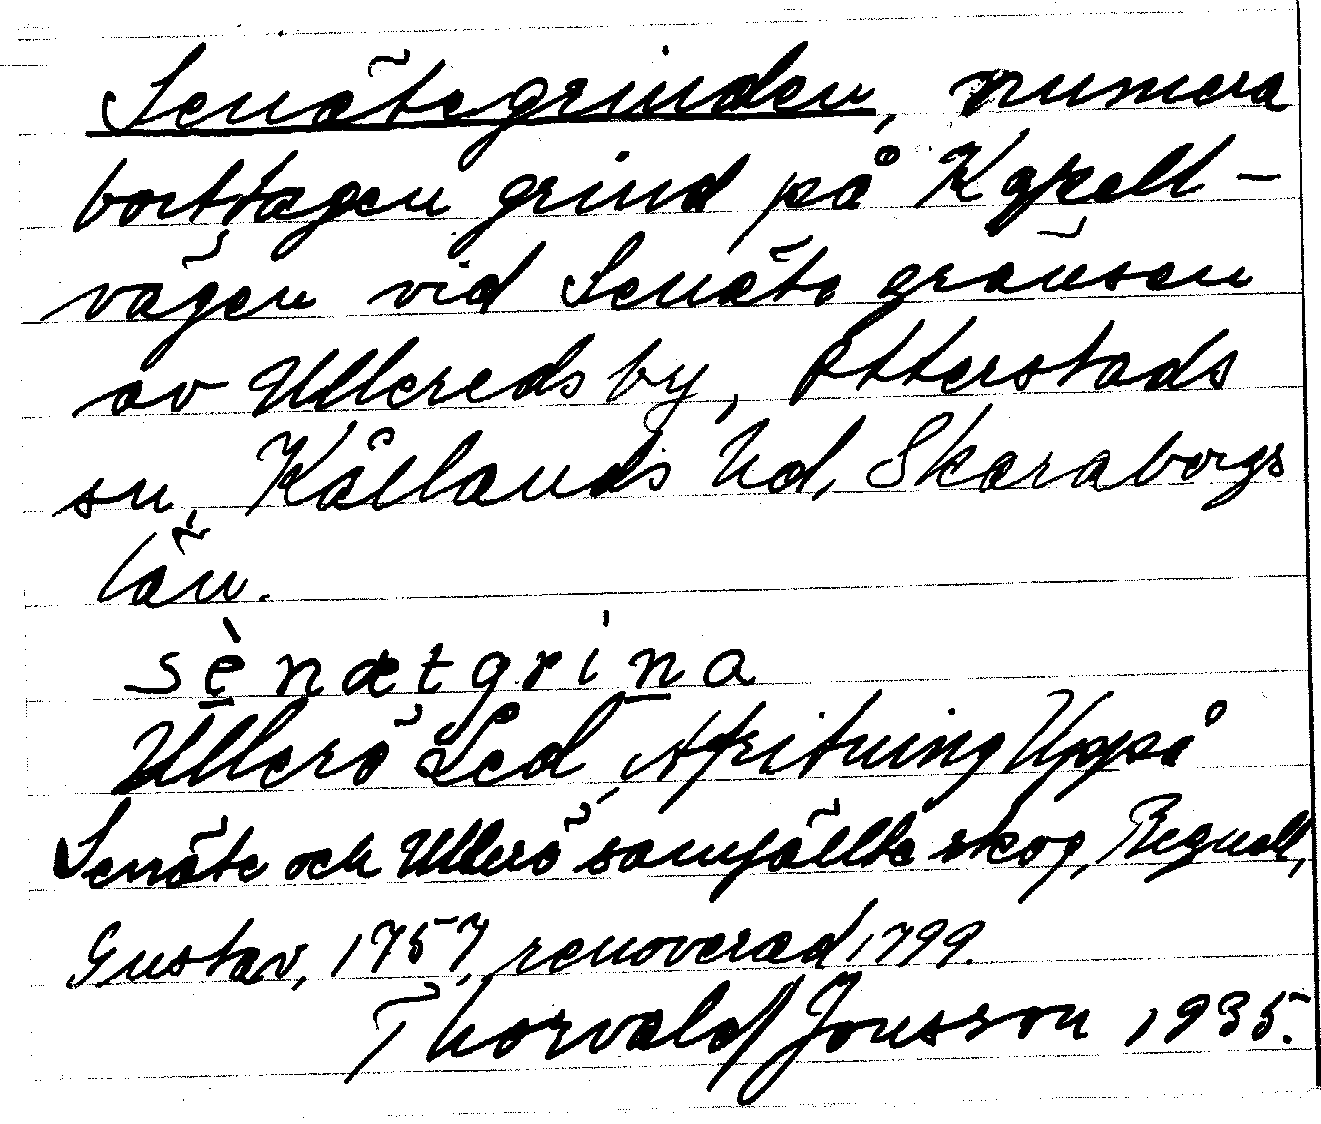 Senätegrinden, numera
borttagen grind på Kapell-
vägen vid Senäte gränsen
av Ullereds by, Otterstads
sn, Kållands hd, Skaraborgs
län.
sènætgrina
Ullerö Led, Afritning Uppå
Senäte och Ullerö samfällte skog, Regnell,
Gustav, 1757, renoverad 1799.
Thorvald Jonsson 1935.